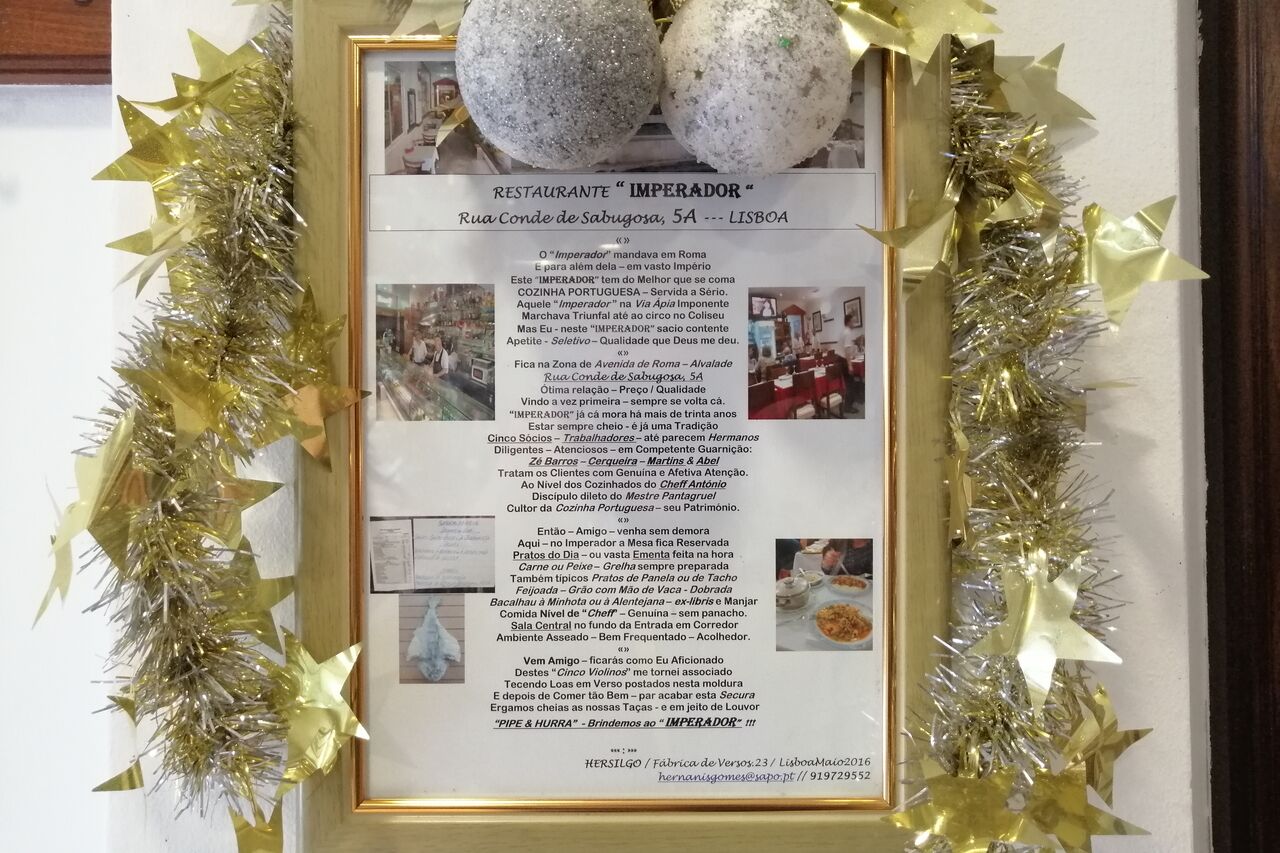 RESTAURANTE “ IMPERADOR “
Rua Conde de Sabugosa, 5A --- LISBOA
«»
O “Imperador” mandava em Roma
E para além dela – em vasto Império
Este “IMPERADOR” tem do Melhor que se coma
COZINHA PORTUGUESA – Servida a Sério.
Aquele “Imperador” na Via Ápia Imponente
Marchava Triunfal até ao circo no Coliseu
Mas Eu - neste “IMPERADOR” sacio contente
Apetite - Seletivo – Qualidade que Deus me deu.
«»
Fica na Zona de Avenida de Roma – Alvalade
Rua Conde de Sabugosa, 5A
Ótima relação – Preço / Qualidade
Vindo a vez primeira – sempre se volta cá.
“IMPERADOR” já cá mora há mais de trinta anos
Estar sempre cheio - é já uma Tradição
Cinco Sócios – Trabalhadores – até parecem Hermanos
Diligentes – Atenciosos – em Competente Guarnição:
Zé Barros – Cerqueira – Martins & Abel
Tratam os Clientes com Genuína e Afetiva Atenção.
Ao Nível dos Cozinhados do Cheff António
Discípulo dileto do Mestre Pantagruel
Cultor da Cozinha Portuguesa – seu Património.
«»
Então – Amigo – venha sem demora
Aqui – no Imperador a Mesa fica Reservada
Pratos do Dia – ou vasta Ementa feita na hora
Carne ou Peixe – Grelha sempre preparada
Também típicos Pratos de Panela ou de Tacho
Feijoada – Grão com Mão de Vaca - Dobrada
Bacalhau à Minhota ou à Alentejana – ex-libris e Manjar
Comida Nível de “Cheff” – Genuína – sem panacho.
Sala Central no fundo da Entrada em Corredor
Ambiente Asseado – Bem Frequentado – Acolhedor.
«»
Vem Amigo – ficarás como Eu Aficionado
Destes “Cinco Violinos” me tornei associado
Tecendo Loas em Verso postados nesta moldura
E depois de Comer tão Bem – par acabar esta Secura
Ergamos cheias as nossas Taças - e em jeito de Louvor
“PIPE & HURRA” - Brindemos ao “ IMPERADOR” !!!
«» : »»
HERSILGO / Fábrica de Versos.23 / LisboaMaio2016
hernanisgomes@sapo.pt // 919729552